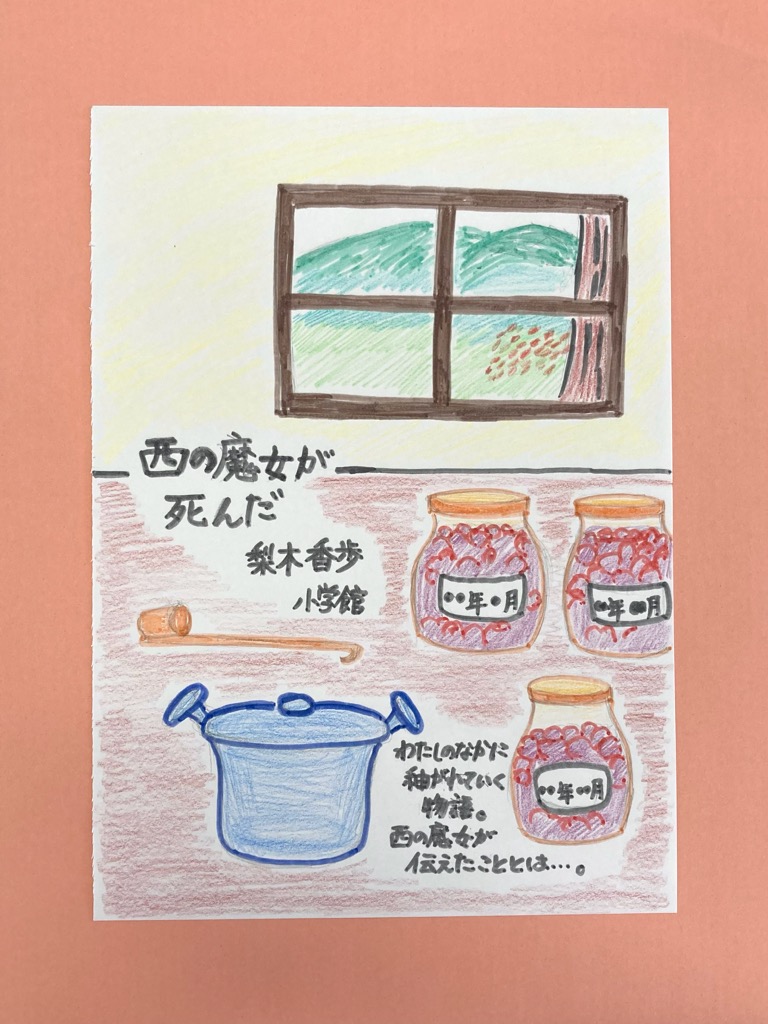 西の魔女が
死んだ
梨木香歩
小学館
●●年●月
●●年●●月
●●年●●月
わたしのなかに
紬がれていく
物語。
西の魔女が
伝えたこととは…。